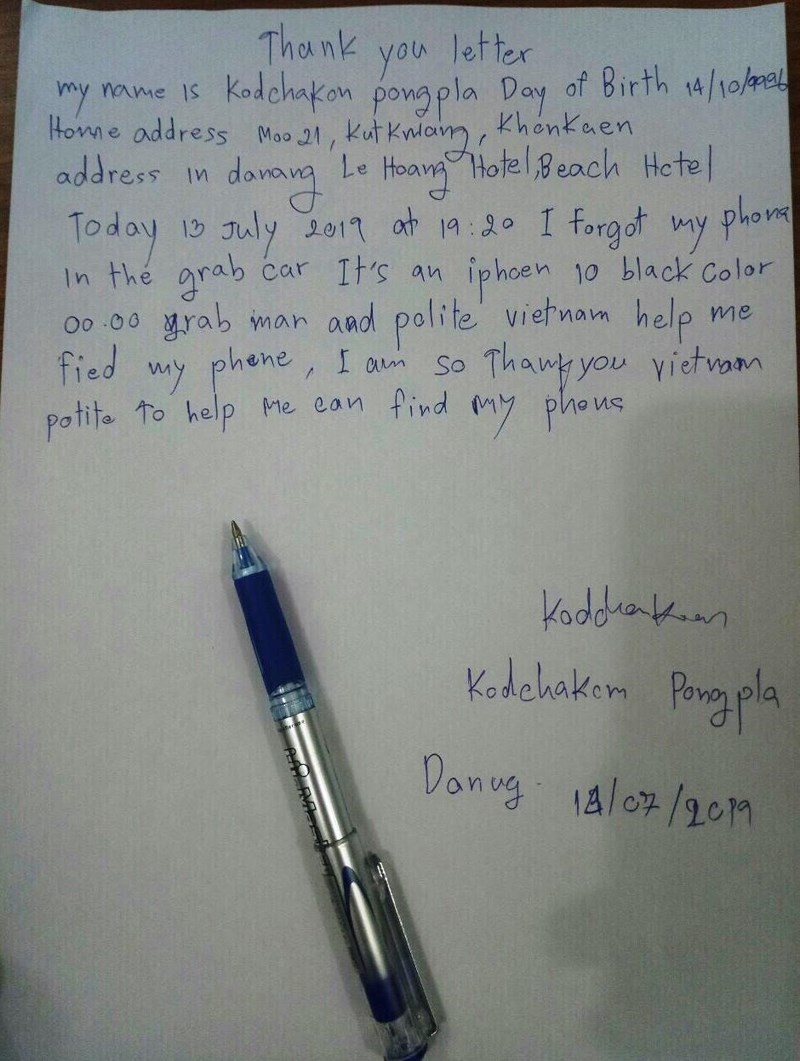 Thank you letter
my name is Kodchakon pongpla Day of Birth 14/10/1996
Home address Moo 21, Kut Kwang, Khonkaen
address in danang Le Hoang Hotel, Beach Hotel
Today 13 July 2019 at 19:20 I forgot my phone
in the grab car It's an iphoen 10 black color
00.00 grab man and polite vietnam help me
fied my phone, I am so Thank you vietnam
potite to help me can find my phone
Kodchakon
Kodchakon Pongpla
Danug.
14/07/2019